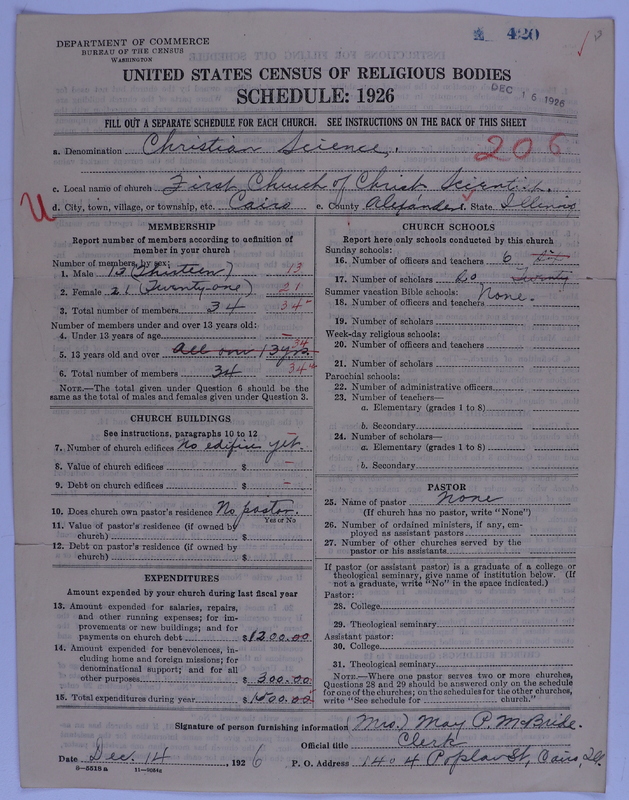 DEPARTMENT OF COMMERCE
BUREAU OF THE CENSUS
WASHINGTON
420
UNITED STATES CENSUS OF RELIGIOUS BODIES
SCHEDULE: 1926
DEC 16 1926
FILL OUT A SEPARATE SCHEDULE FOR EACH CHURCH. SEE INSTRUCTIONS ON THE BACK OF THIS SHEET
a. Denomination Christian Science. 206
c. Local name of church First Church of Christ Scientist.
U d. City, town, village, or township, etc. Cairo e. County Alexander f. State Illinois
MEMBERSHIP
Report number of members according to definition of
member in your church
Number of members by sex:
1. Male 13 (Thirteen) 13
2. Female 21 (Twenty one) 21
3. Total number of members 34 34
Number of members under and over 13 years old:
4. Under 13 years of age –
5. 13 years old and over all over 13 yrs. 34
6. Total number of members 34 34
NOTE.—The total given under Question 6 should be the
same as the total of males and females given under Question 3.
CHURCH BUILDINGS
See instructions, paragraphs 10 to 12
7. Number of church edifices No edifice yet. –
8. Value of church edifices $ –
9. Debt on church edifices $ –
10. Does church own pastor's residence No pastor.
Yes or No
11. Value of pastor's residence (if owned by
church) $
12. Debt on pastor's residence (if owned by
church) $
EXPENDITURES
Amount expended by your church during last fiscal year
13. Amount expended for salaries, repairs,
and other running expenses; for im-
provements or new buildings; and for
payments on church debt $1200.00
14. Amount expended for benevolences, in-
cluding home and foreign missions; for
denominational support; and for all
other purposes $300.00
15. Total expenditures during year $1500.00
CHURCH SCHOOLS
Report here only schools conducted by this church
Sunday schools:
16. Number of officers and teachers 6
17. Number of scholars 20 Twenty
Summer vacation Bible schools: None.
18. Number of officers and teachers
19. Number of scholars
Week-day religious schools:
20. Number of officers and teachers
21. Number of scholars
Parochial schools:
22. Number of administrative officers
23. Number of teachers—
a. Elementary (grades 1 to 8)
b. Secondary
24. Number of scholars—
a. Elementary (grades 1 to 8)
b. Secondary
PASTOR
25. Name of pastor None
(If church has no pastor, write "None")
26. Number of ordained ministers, if any, em-
ployed as assistant pastors
27. Number of other churches served by the
pastor or his assistants
If pastor (or assistant pastor) is a graduate of a college or
theological seminary, give name of institution below. (If
not a graduate, write "No" in the space indicated.)
Pastor:
28. College
29. Theological seminary
Assistant pastor:
30. College
31. Theological seminary
NOTE.—Where one pastor serves two or more churches,
Questions 28 and 29 should be answered only on the schedule
for one of the churches; on the schedules for the other churches,
write "See schedule for church."
Signature of person furnishing information (Mrs.) May P. McBride.
Official title Clerk
Date Dec. 14, 1926 P. O. Address 1404 Poplar St, Cairo, Ill.
8—5518 a 11—9084a